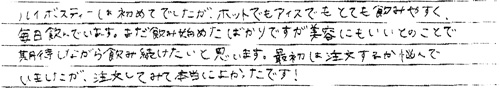 ルイボスティーは初めてでしたが、ホットでもアイスでもとても飲みやすく、
毎日飲んでいます。まだ飲み始めたばかりですが美容にもいいとのことで
期待しながら飲み続けたいと思います。最初は注文するか悩んで
いましたが、注文してみて本当によかったです!